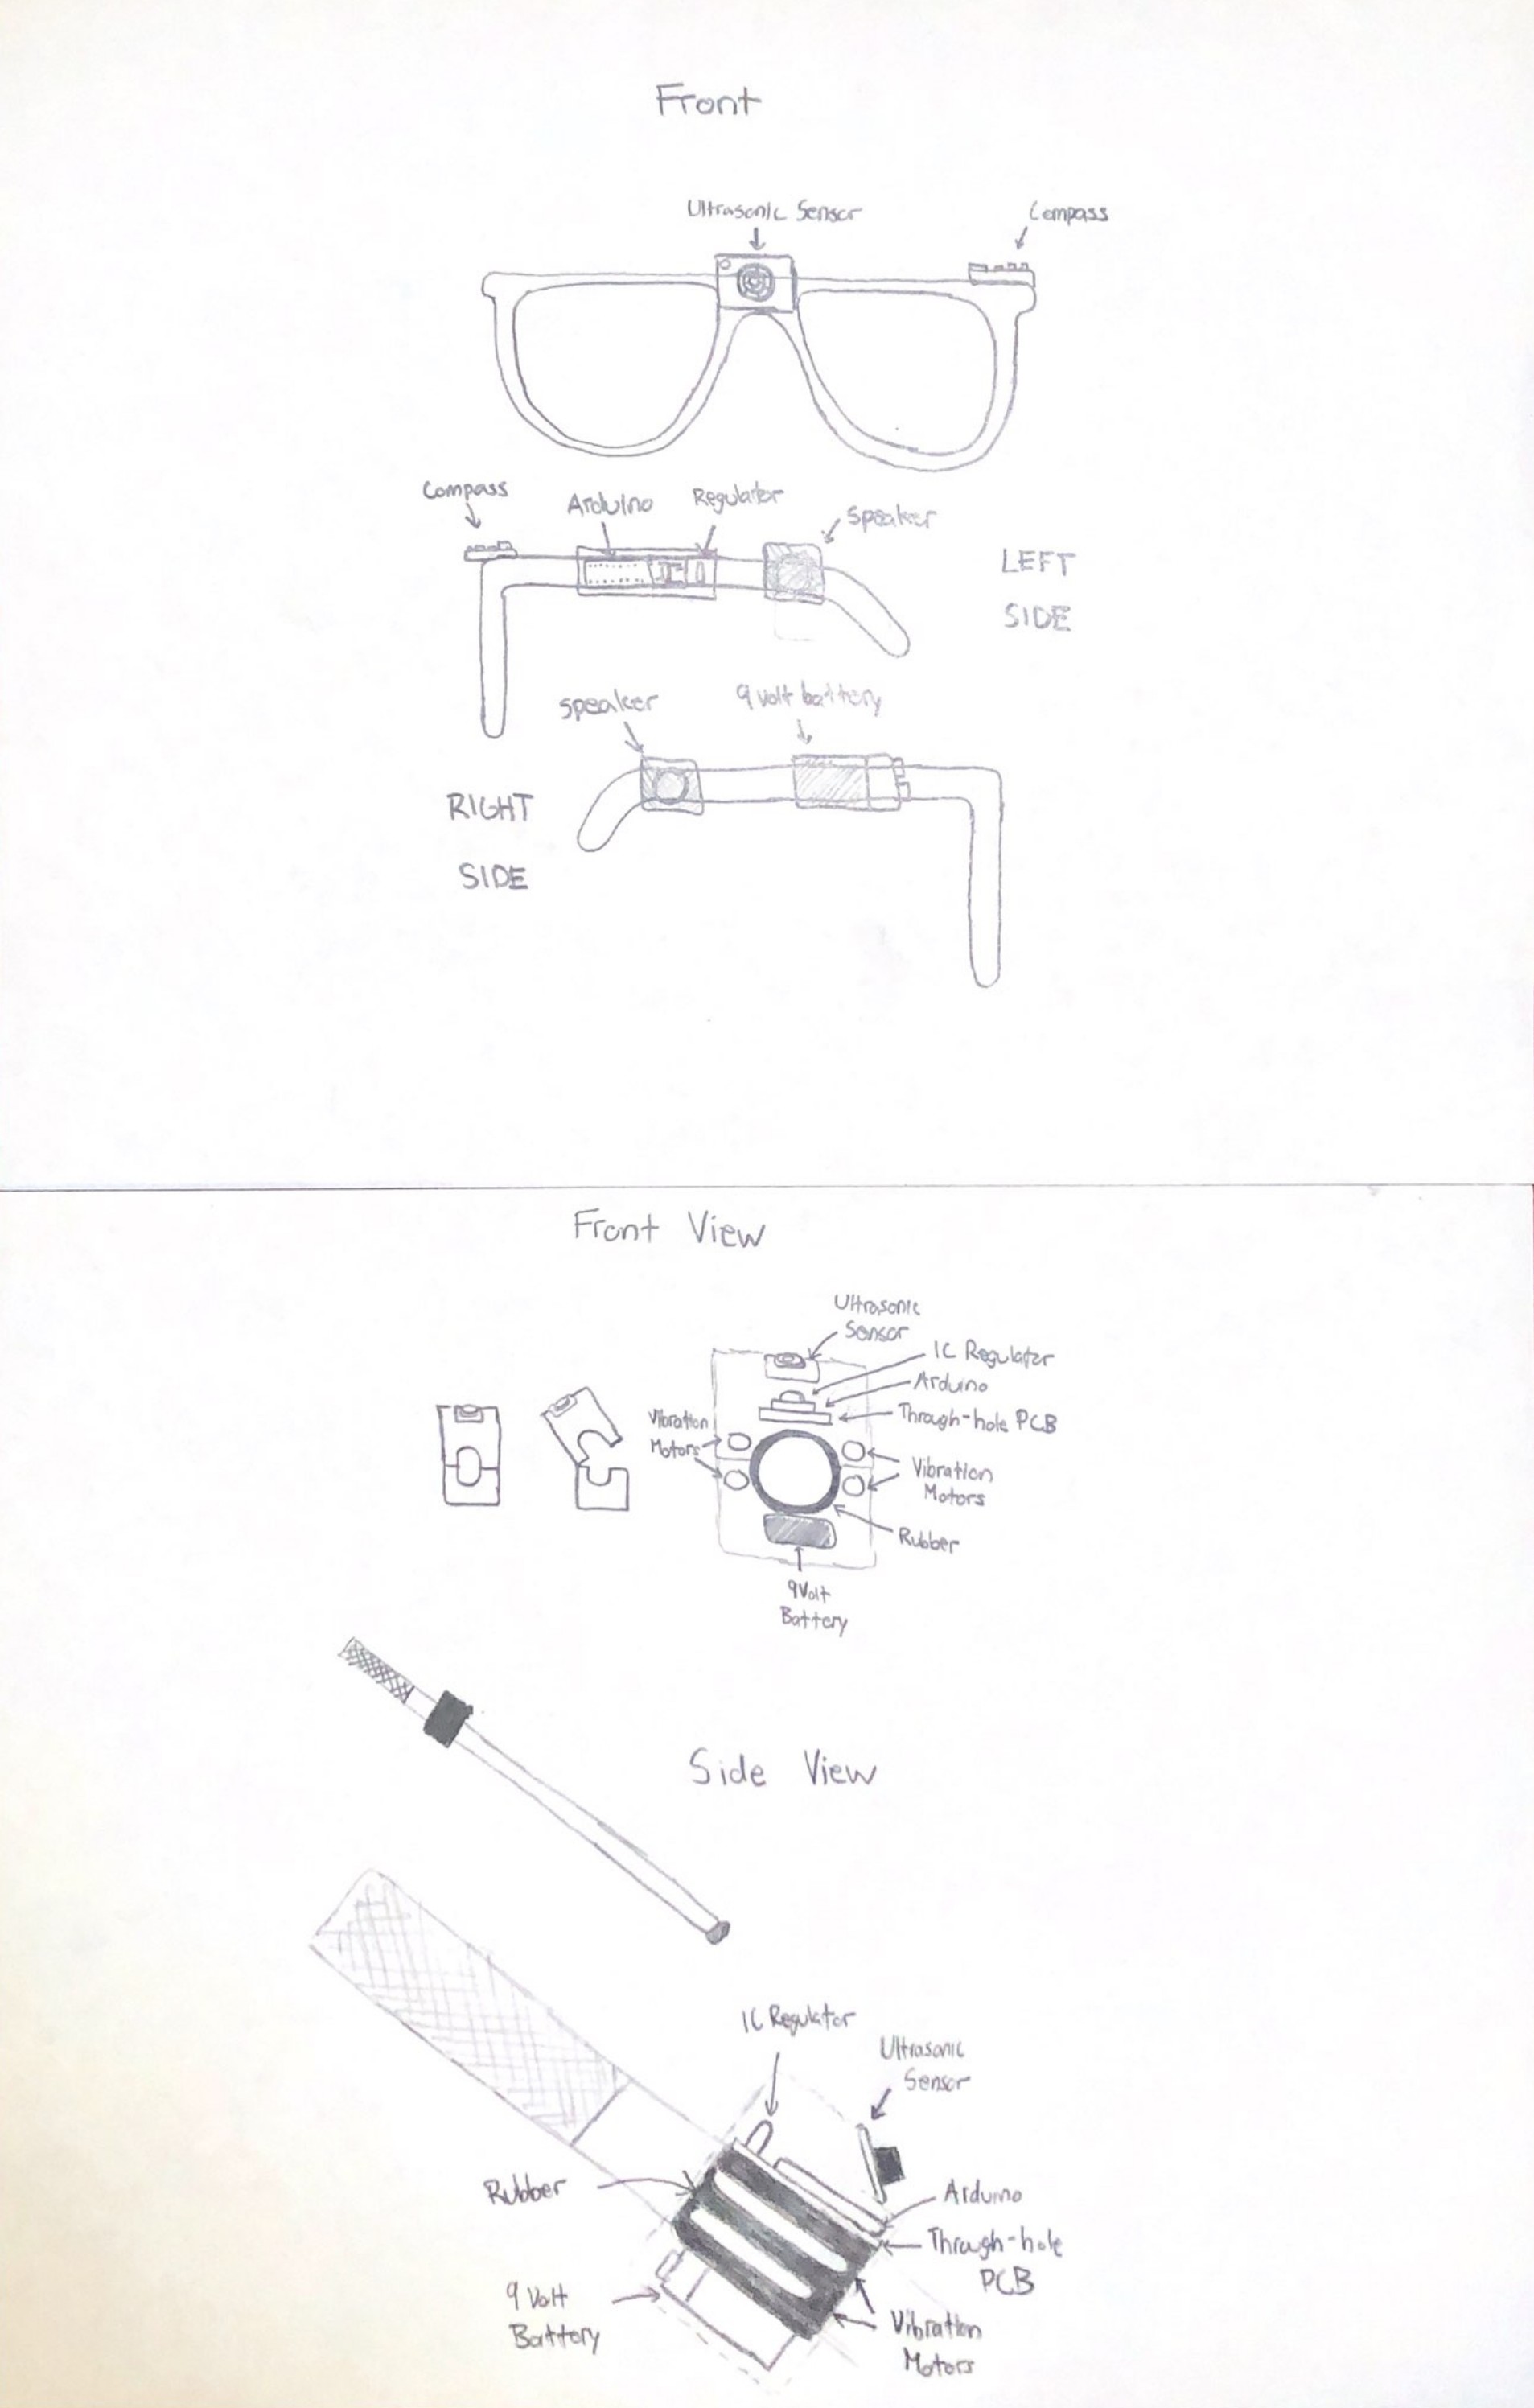 Front
Ultrasonic Sensor
Compass
Compass
Arduino
Regulator
Speaker
LEFT
SIDE
speaker
9 volt battery
RIGHT
SIDE
Front View
Ultrasonic
Sensor
IC Regulator
Arduino
Through-hole PCB
Vibration
Motors
Vibration
Motors
Rubber
9Volt
Battery
Side View
IC Regulator
Ultrasonic
Sensor
Rubber
Arduino
Through-hole
PCB
9 Volt
Battery
Vibration
Motors